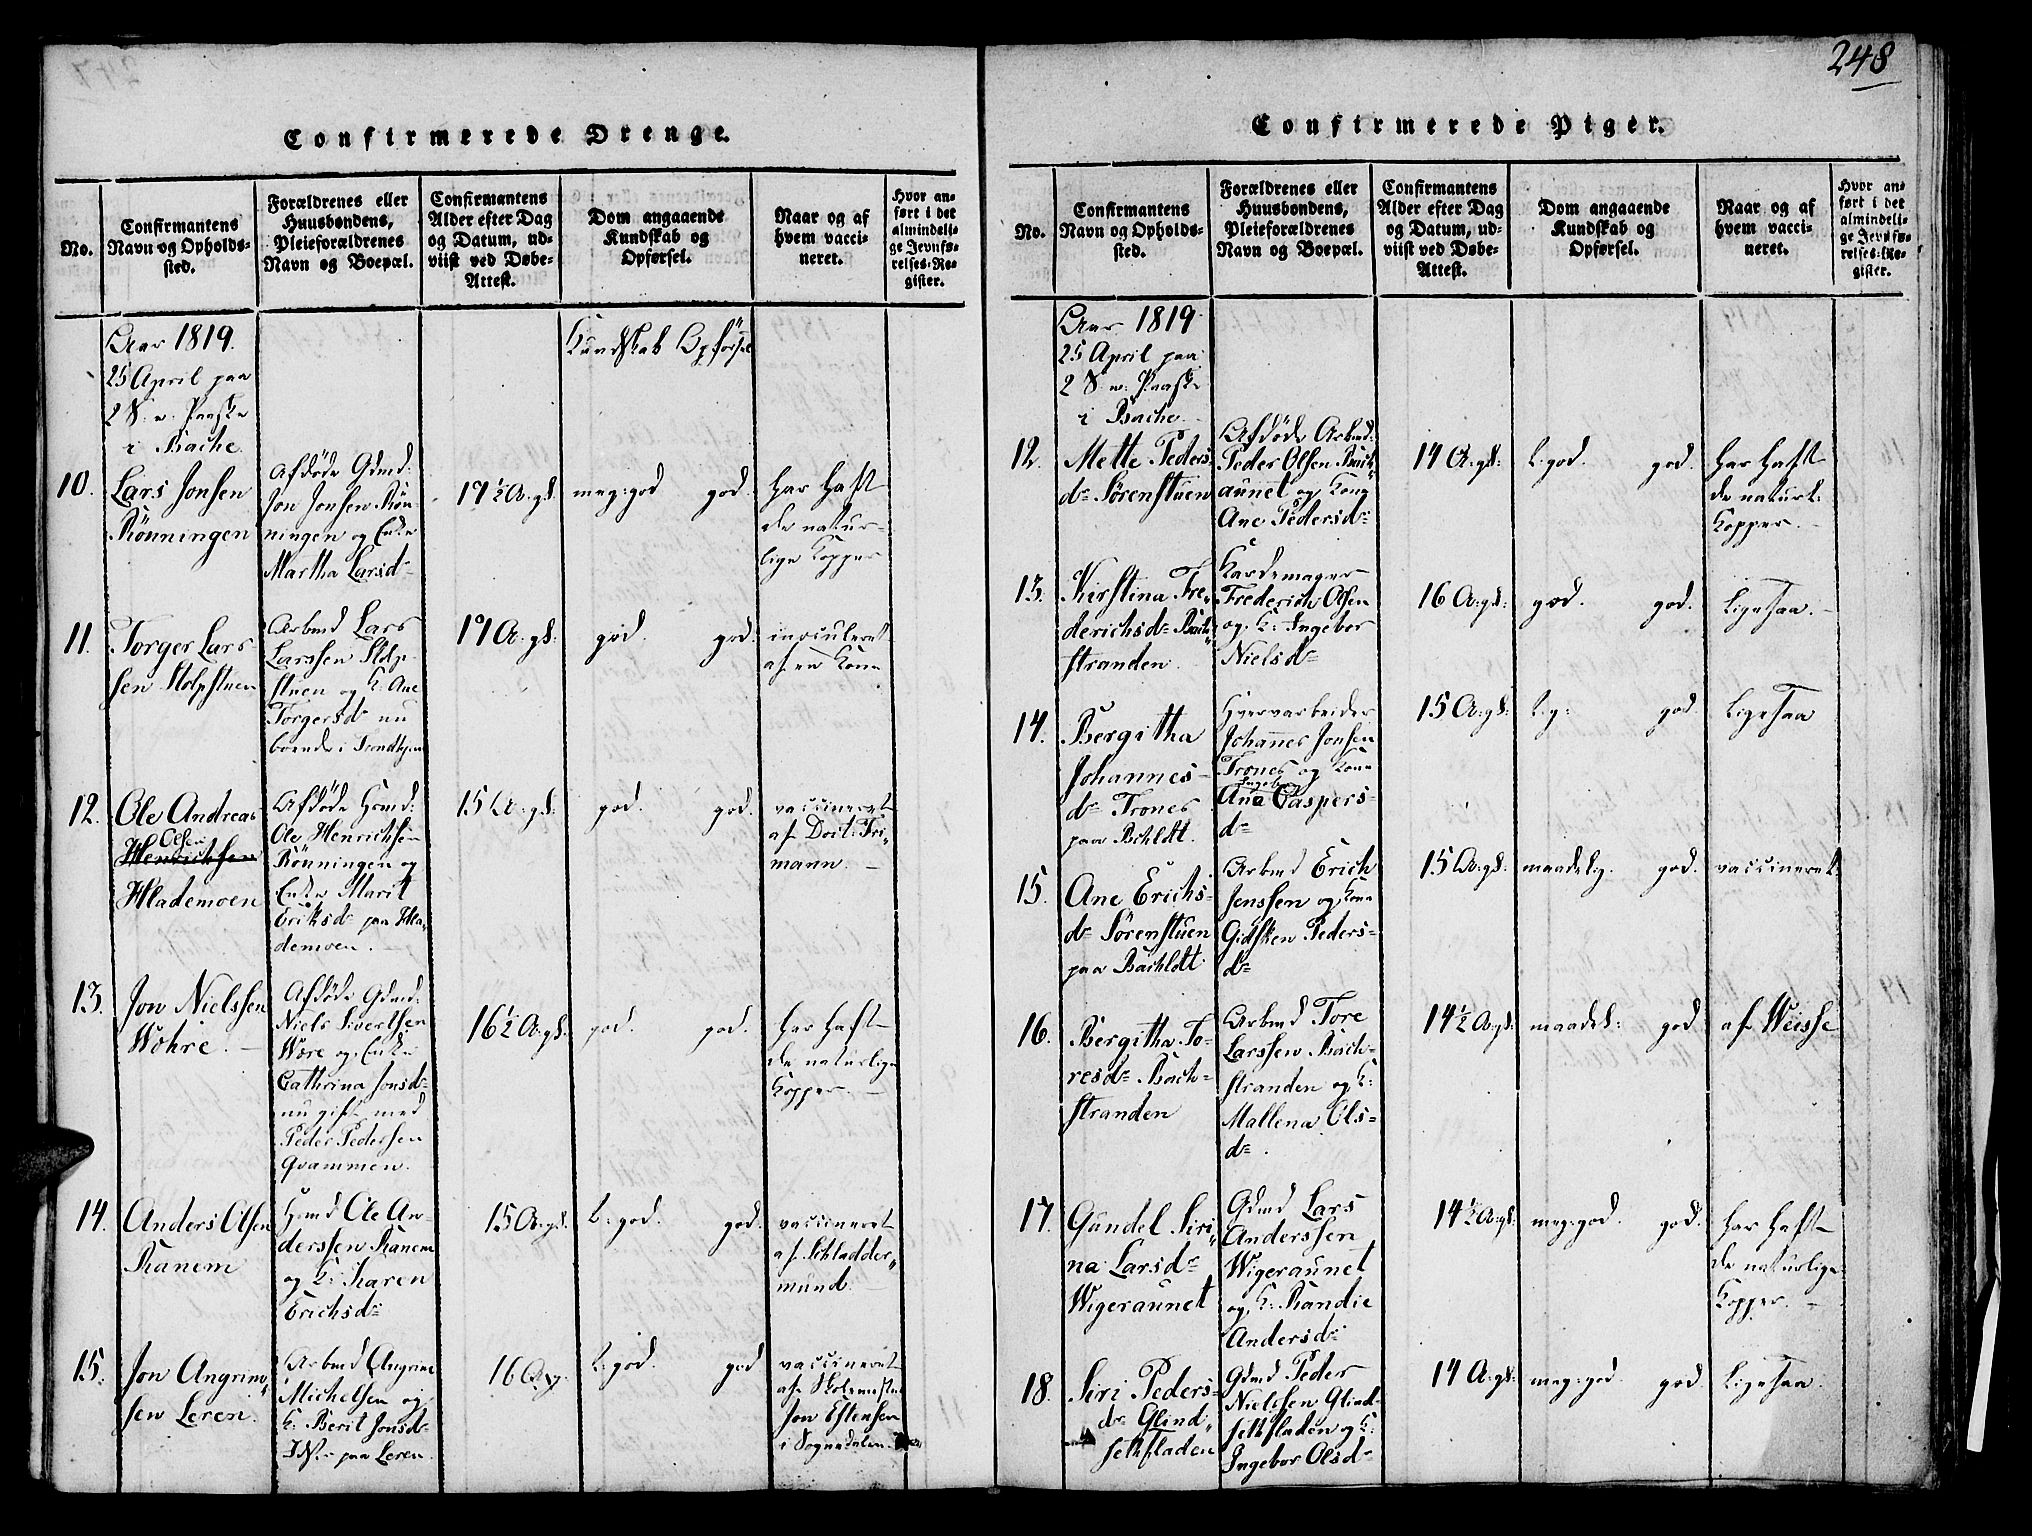 248
Confirmerede Drenge.
No.
Confirmantens
Navn og Opholds-
sted.
Forældrenes eller
Huusbondens,
Pleieforældrenes
Navn og Boepæl.
Confirmantens
Alder efter Dag
og Datum, ud-
viist ved Døbe-
Attest.
Dom angaaende
Kundskab og
Opførsel.
Naar og af
hvem vacci-
neret.
Hvor an-
ført i det
almindeli-
ge Jevnfø-
relses-Re-
gister.
Aar 1819.
25 April paa
2 S. e. Paaske
i Bache.
Kundskab Opførsel
10.
Lars Jonsen
Rönningen
Afdöde Gdmd:
Jon Jonsen Rön-
ningen og Enke
Martha Larsd=
17½ A. gl.
meg: god god.
har haft
de natur-
lige Kopper
11.
Torger Lars-
sen Stolpstuen
Arbmd Lars
Larssen Stolp-
stuen og K: Ane
Torgersd= nu
boende i Trondhjem
17 A. gl.
god. god.
inoculeret
af en Kone
12.
Ole Andreas
Olsen
Henrichsen
Hlademoen
Afdöde Hsmd:
Ole Henrichsen
Rönningen og
Enke Marit
Eriksd= paa Hla-
demoen.
15 A. gl.
god. god.
vaccineret
af Doct: Tri-
mann.
13.
Jon Nielssen
Wohre.
Afdöde Gdmd:
Niels Sivertsen
Wore og Enke
Cathrina Jonsd=
nu gift med
Peder Pedersen
Qvammen.
16½ A. gl.
god. god.
har haft
de naturlige
Kopper.
14.
Anders Olsen
Ranem
Hsmd Ole An-
derssen Ranem
og K: Karen
Erichsd=
15 A. gl.
t: god. god.
vaccineret
af Schladder-
mund.
15.
Jon Angrim-
sen Leren.
Arbmd Angrim
Michelsen og
K: Berit Jonsd=
paa Leren.
16 A. g.
t: god. god
vaccineret
af Skolemester
Jon Estensen
i Sognedalen.
Confirmerede Piger.
No.
Confirmantens
Navn og Opholds-
sted.
Forældrenes eller
Huusbondens,
Pleieforældrenes
Navn og Boepæl.
Confirmantens
Alder efter Dag
og Datum, ud-
viist ved Døbe-
Attest.
Dom angaaende
Kundskab og
Opførsel.
Naar og af
hvem vacci-
neret.
Hvor an-
ført i det
almindeli-
ge Jevnfø-
relses-Re-
gister.
Aar 1819.
25 April paa
2 S. e. Paaske
i Bache.
12.
Mette Peders-
d= Sörenstuen
Afdöde Arbmd:
Peder Olsen Bach-
aunet og Kone
Ane Pedersd=
14 A. gl.
t: god. god.
har haft
de naturl:
Kopper.
13.
Kirstina Fre-
derichsd= Bach-
stranden.
Kardemager
Frederich Olsen
og K: Ingebor
Nielsd=
16 A. gl.
god. god.
Ligesaa.
14.
Bergitha
Johannes-
d= Trones
paa Bachlott.
Hververbeider
Johannes Jonsen
Trones og Kone
Ingeborg
Ana Caspers-
d=
15 A. gl.
t: g: god
Ligesaa
15.
Ane Erichs-
d= Sörenstuen
paa Bachlott.
Arbmd Erich
Jenssen og Kone
Gidsken Peders-
d=
15 A. gl.
maadelig. god.
vaccineret.
16.
Bergitha To-
resd= Bach-
stranden
Arbmd Tore
Larssen Bach-
stranden og K:
Mallena Ols-
d=.
14½ A. gl.
maadel: god
af Weisse
17.
Gundel Siri-
na Larsd=
Wigeraunet
Gdmd Lars
Anderssen
Wigeraunet
og K: Randie
Andersd=
14½ A. gl.
meg: god. god.
har haft
de naturlige
Kopper.
18.
Siri Peders-
d= Glind-
sethfladen
Gdmd Peder
Nielssen Glind-
sethfladen og K:
Ingebor Olsd=
14 A. gl.
meg: god. god.
Ligesaa.